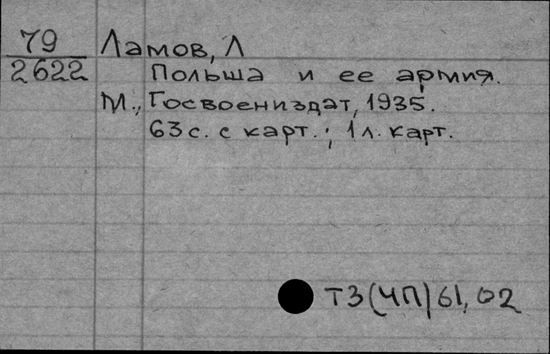 79 Ламов, Л
2622 Польша и ее армия.
М., Госвоениздат, 1935.
63 с. с карт.; 1 л. карт.
Т3(4П)61,02